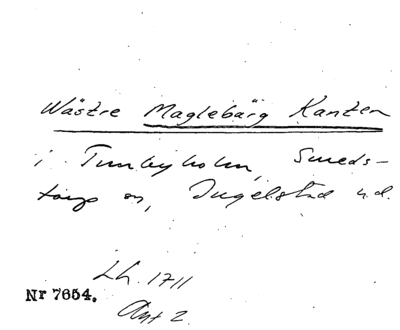 Wästre Maglebärg Kanten
i Tunbyholm, Smeds-
torp sn, Ingelstad h.d.
Lh. 1711
Nr 7654.
Akt 2.